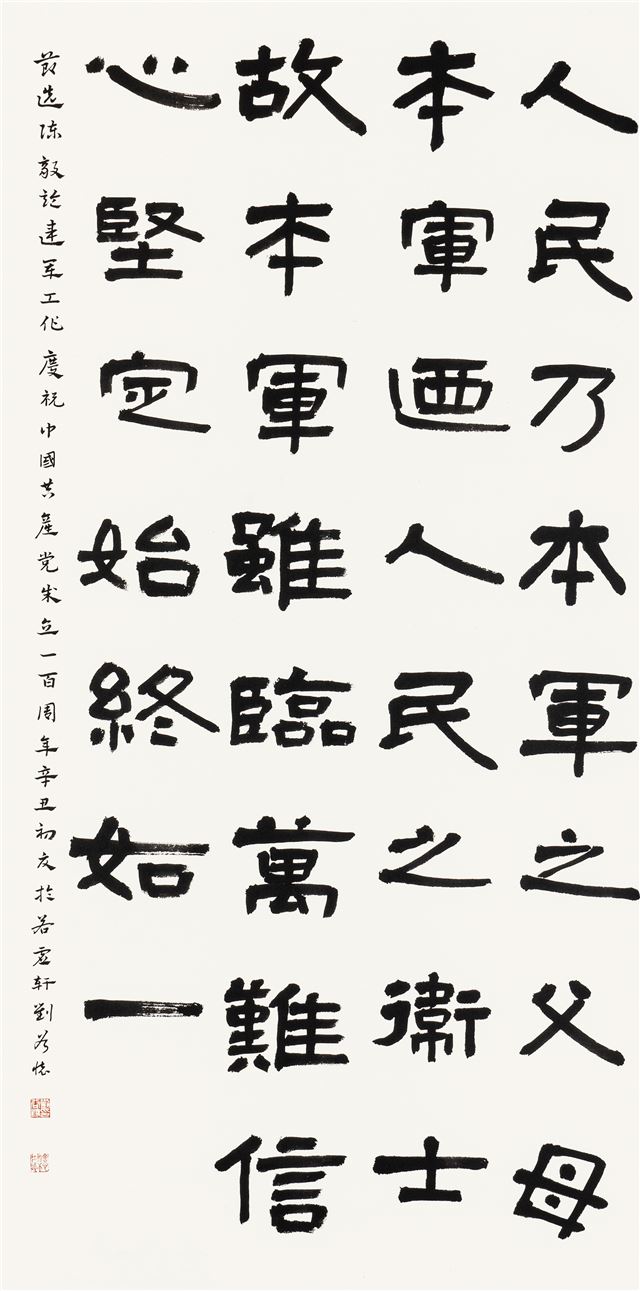 人民乃本軍之父母
本軍迺人民之衛士
故本軍雖臨萬難信
心堅定始終如一
節选陈毅论建军工作 慶祝中國共產党成立一百周年辛丑初夏於若虚轩劉